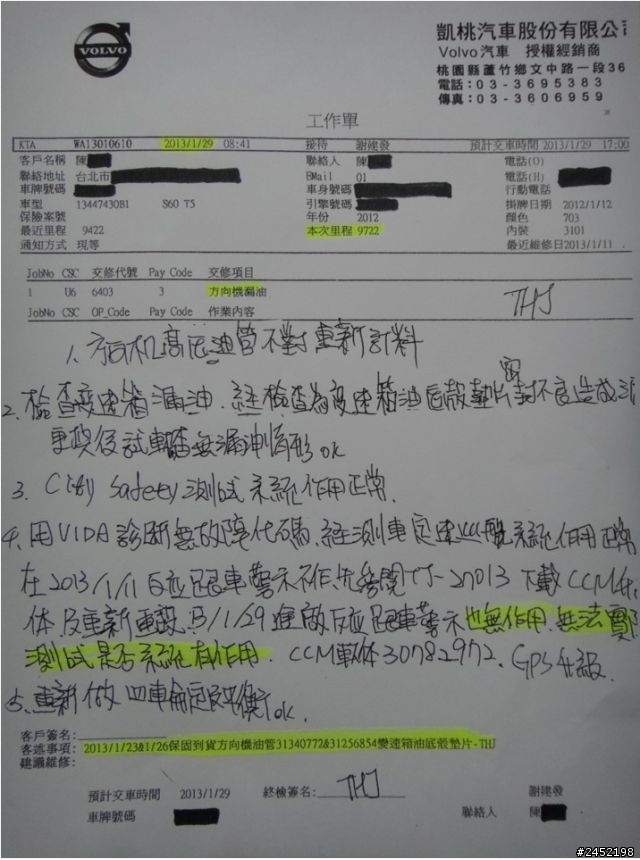 VOLVO
凱桃汽車股份有限公
Volvo汽車 授權經銷商
桃園縣蘆竹鄉文中路一段36
電話:03-3695383
傳真:03-3606959
工作單
KTA WA13010610 2013/1/29 08:41 接待 謝建發 預計交車時間 2013/1/29 17:00
客戶名稱 陳 聯絡人 陳 電話(O)
聯絡地址 台北市 EMail 01 電話(H)
車牌號碼 車身號碼 行動電話
車型 13447430B1 S60 T5 引擎號碼 掛牌日期 2012/1/12
保險案號 年份 2012 顏色 703
最近里程 9422 本次里程 9722 內裝 3101
通知方式 現等 最近維修日2013/1/11
JobNo CSC 交修代號 Pay Code 交修項目
1 U6 6403 3 方向機漏油
JobNo CSC OP_Code Pay Code 作業內容
THJ
1. 方向机高压油管不對重新訂料
2. 檢查變速箱漏油. 經檢查為變速箱油底殼墊片密封不良造成
更換後試車檢查無漏油情形 ok
3. City Safety 測試系統作用正常.
4. 用VIDA診斷無故障代碼. 經測車定速巡航系統作用正常
在2013/1/11反應跟車警示不作 27013 下載CCM軟
體及重新重設. 1/29進廠反應跟車警示也無作用. 無法實
測試是否系統有作用. CCM軟体30782972. GPS升級.
5. 重新做四車輪定位平衡 ok.
客戶簽名:
客述事項: 2013/1/23&1/26保固到貨方向機油管31340772&31256854變速箱油底殼墊片-THJ
建議維修:
預計交車時間 2013/1/29 終檢簽名: THJ 謝建發
車牌號碼 聯絡人 陳
#2452198